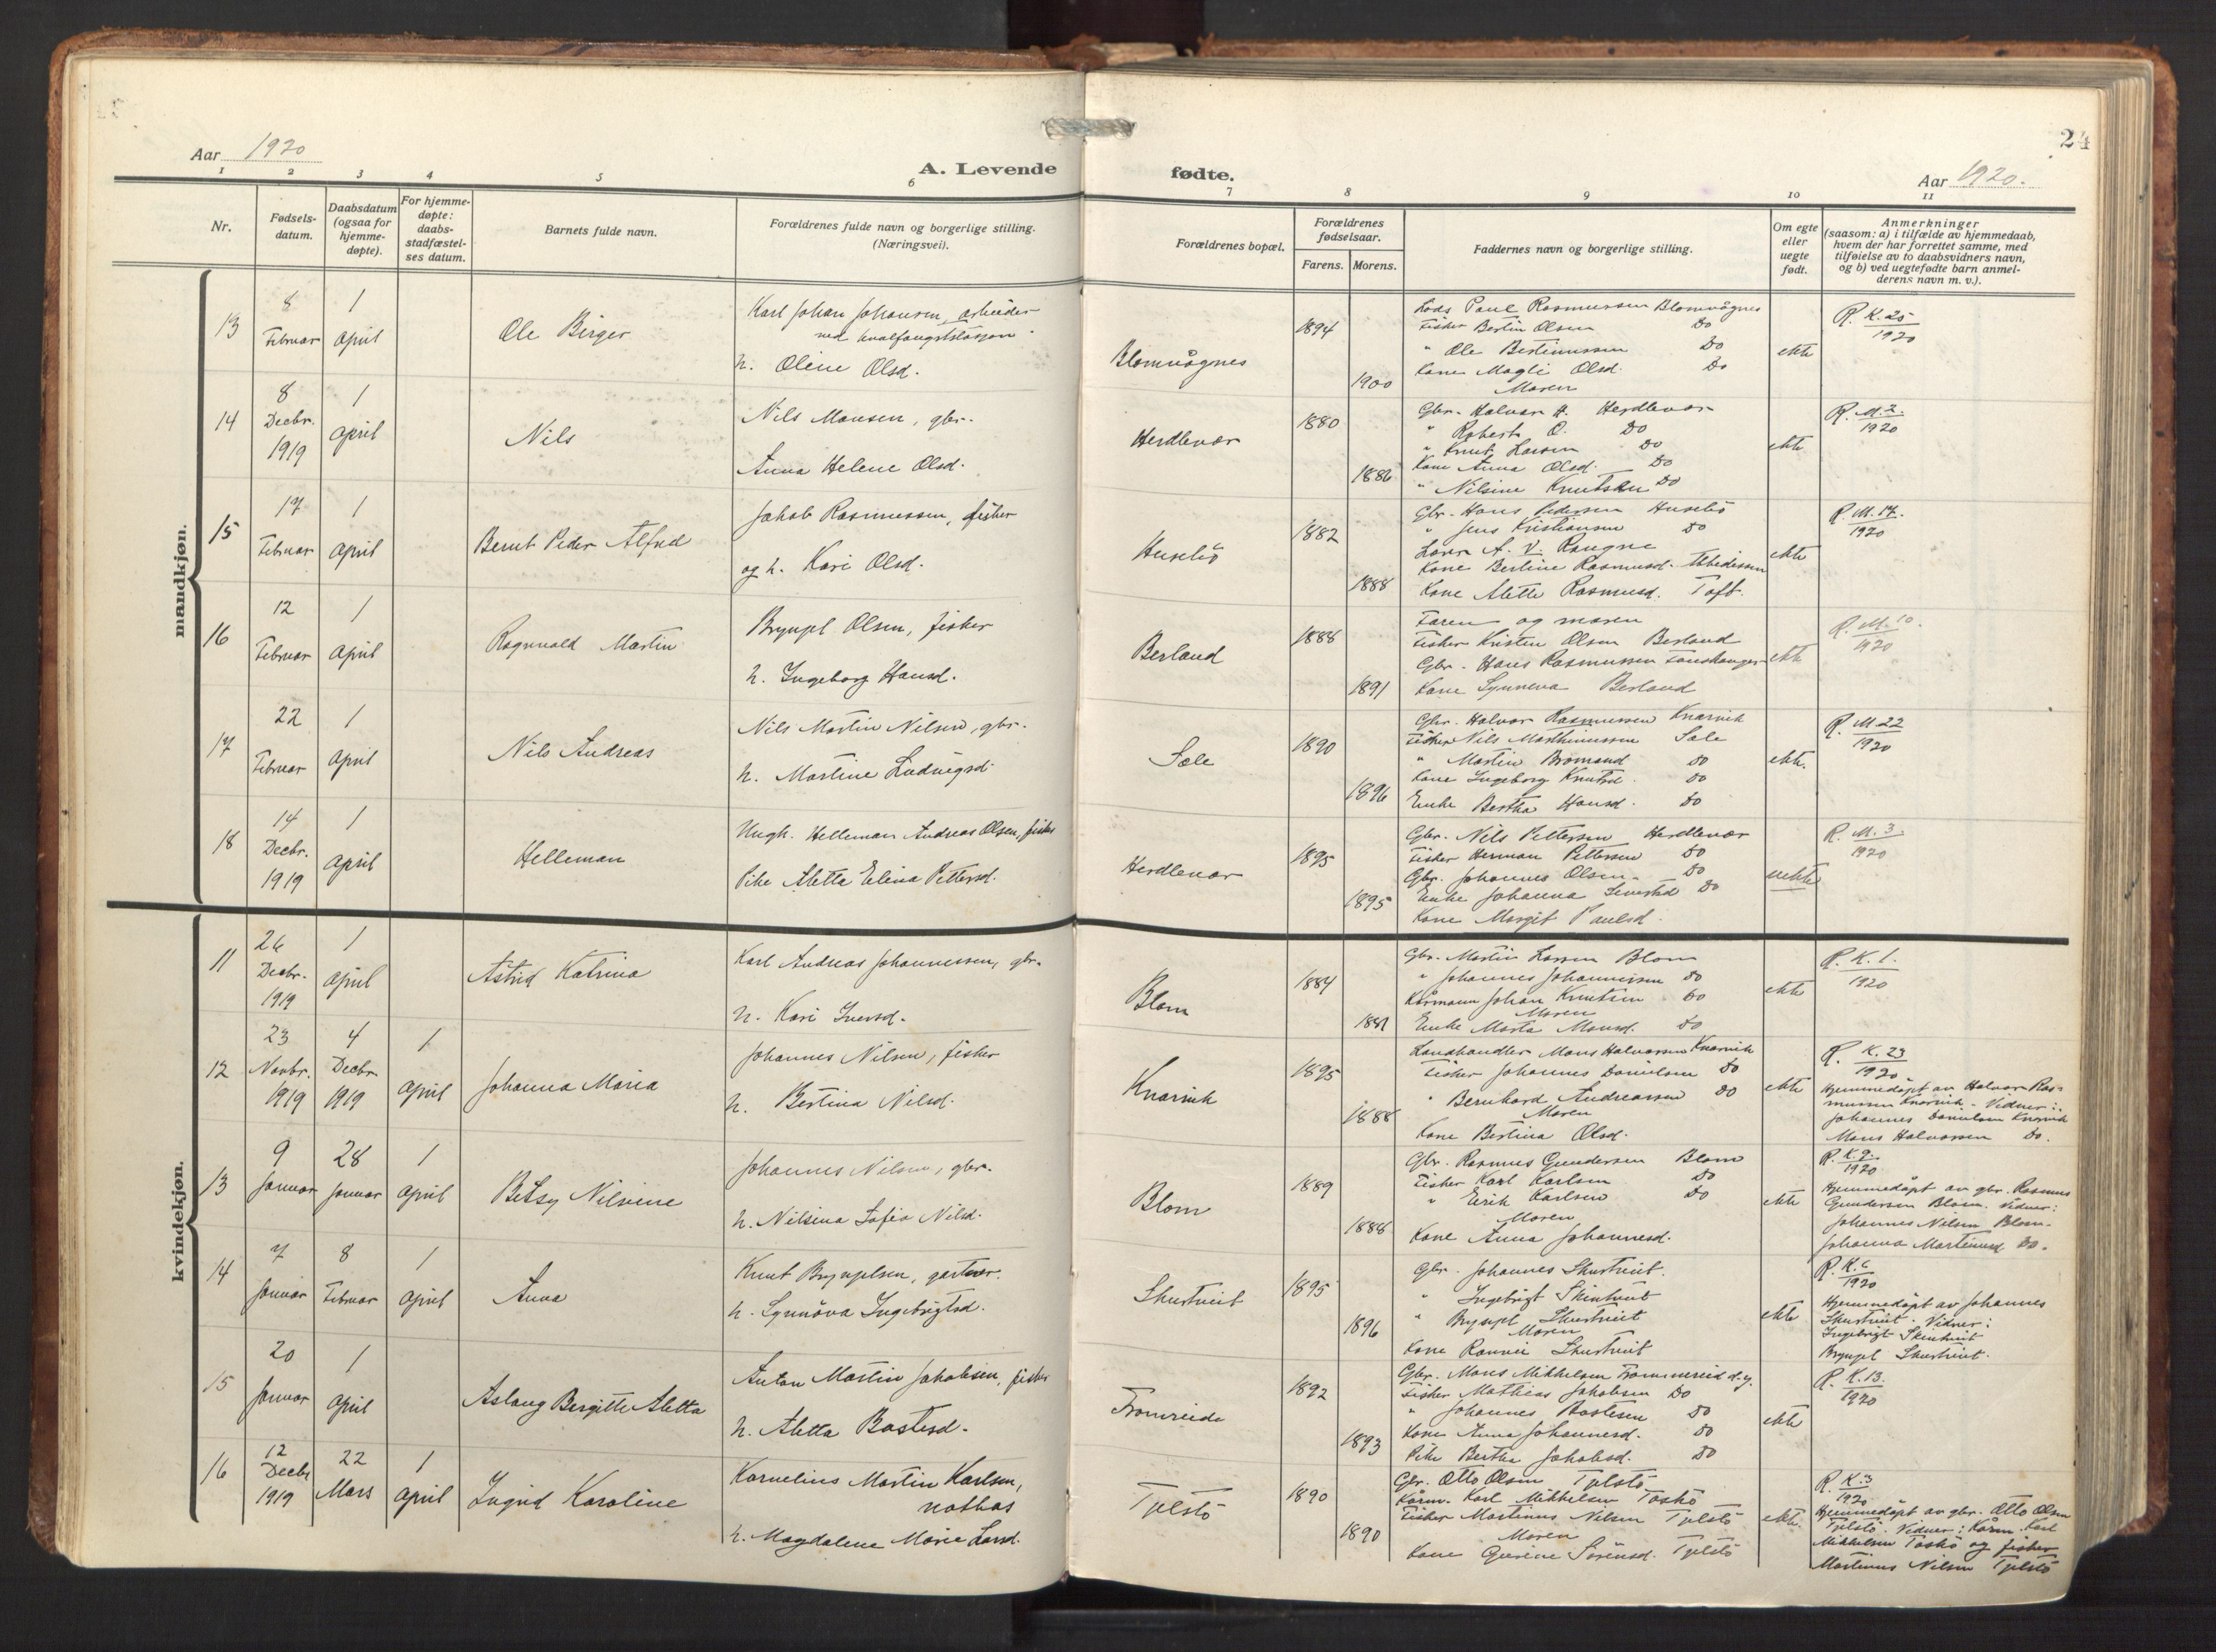 24
Aar 1920
A. Levende
fødte.
Aar 1920.
1 2 3 4 5 6 7 8 9 10 11
Nr.
Fødsels-
datum.
Daabsdatum
(ogsaa for
hjemme-
døpte).
For hjemme-
døpte:
daabs-
stadfæstel-
ses datum.
Barnets fulde navn.
Forældrenes fulde navn og borgerlige stilling.
(Næringsvei).
Forældrenes bopæl.
Forældrenes
fødselsaar.
Farens. Morens.
Faddernes navn og borgerlige stilling.
Om egte
eller
uegte
født.
Anmerkninger
(saasom: a) i tilfælde av hjemmedaab,
hvem der har forrettet samme, med
tilføielse av to daabsvidners navn,
og b) ved uegtefødte barn anmel-
derens navn m. v.).
mandkjøn.
13
8
Februar
1
April
Ole Birger
Karl Johan Johansen, arbeider
ved hvalfangststasjon
h. Oline Olsd.
Blomvågnes
1894
1900
Lods Paul Rasmussen Blomvågnes
Fisker Bertin Olsen Do
" Ole Bertinussen Do
Kone Magli Olsd. Do
Moren
ekte
R. K. 25
1920
14
8
Decbr.
1919
1
April
Nils
Nils Monsen, gbr.
Anna Helene Olsd.
Herdlevær
1880
1886
Gbr. Halvor H. Herdlevær
" Robert O. Do
" Knut Larsen Do
Kone Anna Olsd. Do
" Nilsine Knutsen Do
ekte
R. M. 2.
1920
15
17
Februar
1
April
Bernt Peder Alfred
Jakob Rasmussen, fisker
og h. Kari Olsd.
Huselö
1882
1888
Gbr. Hans Pedersen Huselö
" Jens Kristiansen Do
Lærer A. V. Rangne
Kone Bertine Rasmusd.
Kone Alette Rasmusd. Toft.
ekte
R. M. 17.
1920
16
12
Februar
1
April
Ragnvald Martin
Brynjel Olsen, fisker
h. Ingeborg Hansd.
Berland
1888
1891
Faren og moren
Fisker Kristen Olsen Berland
Gbr. Hans Rasmussen
Kone Synneva Berland
ekte
R. M. 10.
1920
17
22
Februar
1
April
Nils Andreas
Nils Martin Nilsen, gbr.
h. Martine Ludvigsd.
Sæle
1890
1896
Gbr. Halvor Rasmussen Knarvik
Fisker Nils Marthinussen Sæle
" Martin Bromand Do
Kone Ingeborg Knutsd. Do
Enke Bertha Hansd. Do
ekte.
R. M. 22
1920
18
14
Decbr.
1919
1
April
Helleman
Ungk. Helleman Andreas Olsen, fisker
Pike Aletta Elina Pettersd.
Herdlevær
1895
1895
Gbr. Nils Pettersen Herdlevær
Fisker Herman Pettersen Do
Gbr. Johannes Olsen Do
Enke Johanna Do
Kone Margit Paulsd.
uekte
R. M. 3.
1920
kvindekjøn.
11
26
Decbr.
1919
1
April
Astrid Katrina
Karl Andreas Johannessen, gbr.
h. Kari Iversd.
Blom
1884
1881
Gbr. Martin Larsen Blom
" Johannes Johannessen Do
Kårmann Johan Knutsen Do
Moren
Enke Marta Monsd. Do
ekte
R. K. 1.
1920
12
23
Novbr.
1919
4
Decbr.
1919
1
April
Johanna Maria
Johannes Nilsen, fisker
h. Bertina Nilsd.
Knarvik
1895
1888
Landhandler Mons Halvorsen Knarvik
Fisker Johannes Danielsen Do
" Bernhard Andreassen Do
Moren
Kone Bertina Olsd.
ekte
R. K. 23
1920
Hjemmedøpt av Halvor Ras-
mussen Knarvik. Vidner:
Johannes Danielsen Knarvik
Mons Halvorsen Do.
13
9
Januar
28
Januar
1
April
Betsy Nilsine
Johannes Nilsen, gbr.
h. Nilsina Sofia Nilsd.
Blom
1889
1888
Gbr. Rasmus Gundersen Blom
Fisker Karl Karlsen Do
" Erik Karlsen Do
Moren
Kone Anna Johannesd.
ekte
R. K. 9.
1920
Hjemmedøpt av gbr. Rasmus
Gundersen Blom. Vidner:
Johannes Nilsen Blom.
Johanna Martinusd. Do.
14
7
Januar
8
Februar
1
April
Anna
Knut Brynjelsen, gartner.
h. Synnöva Ingebrigtsd.
Skurtveit
1895
1896
Gbr. Johannes Skurtveit.
" Ingebrigt Skurtveit
" Brynjel Skurtveit
Moren
Kone Rannei Skurtveit
ekte
R. K. 6
1920
Hjemmedøpt av Johannes
Skurtveit. Vidner:
Ingebrigt Skurtveit
Brynjel Skurtveit.
15
20
Januar
1
April
Aslaug Bergitte Aletta
Anton Martin Jakobsen, fisker
h. Aletta Bastesd.
Fromreide
1892
1893
Gbr. Mons Mikkelsen Frommreid d.y.
Fisker Mathias Jakobsen Do
" Johannes Bastesen Do
Kone Anna Johannesd. Do
Pike Bertha Jakobsd. Do
ekte
R. K. 13.
1920
16
12
Decbr
1919
22
Mars
1
April
Ingrid Karoline
Kornelius Martin Karlsen,
notbas
h. Magdalene Marie Larsd.
Tjelstö
1890
1890
Gbr. Otto Olsen Tjelstö
Kårm. Karl Mikkelsen Toskö
Fisker Martinus Nilsen Tjelstö
Moren
Kone Gurine Sörensd. Tjelstö
ekte.
R. K. 3
1920
Hjemmedøpt av gbr. Otto Olsen
Tjelstö. Vidner: Kårm. Karl
Mikkelsen Toskö og fisker
Martinus Nilsen Tjelstö